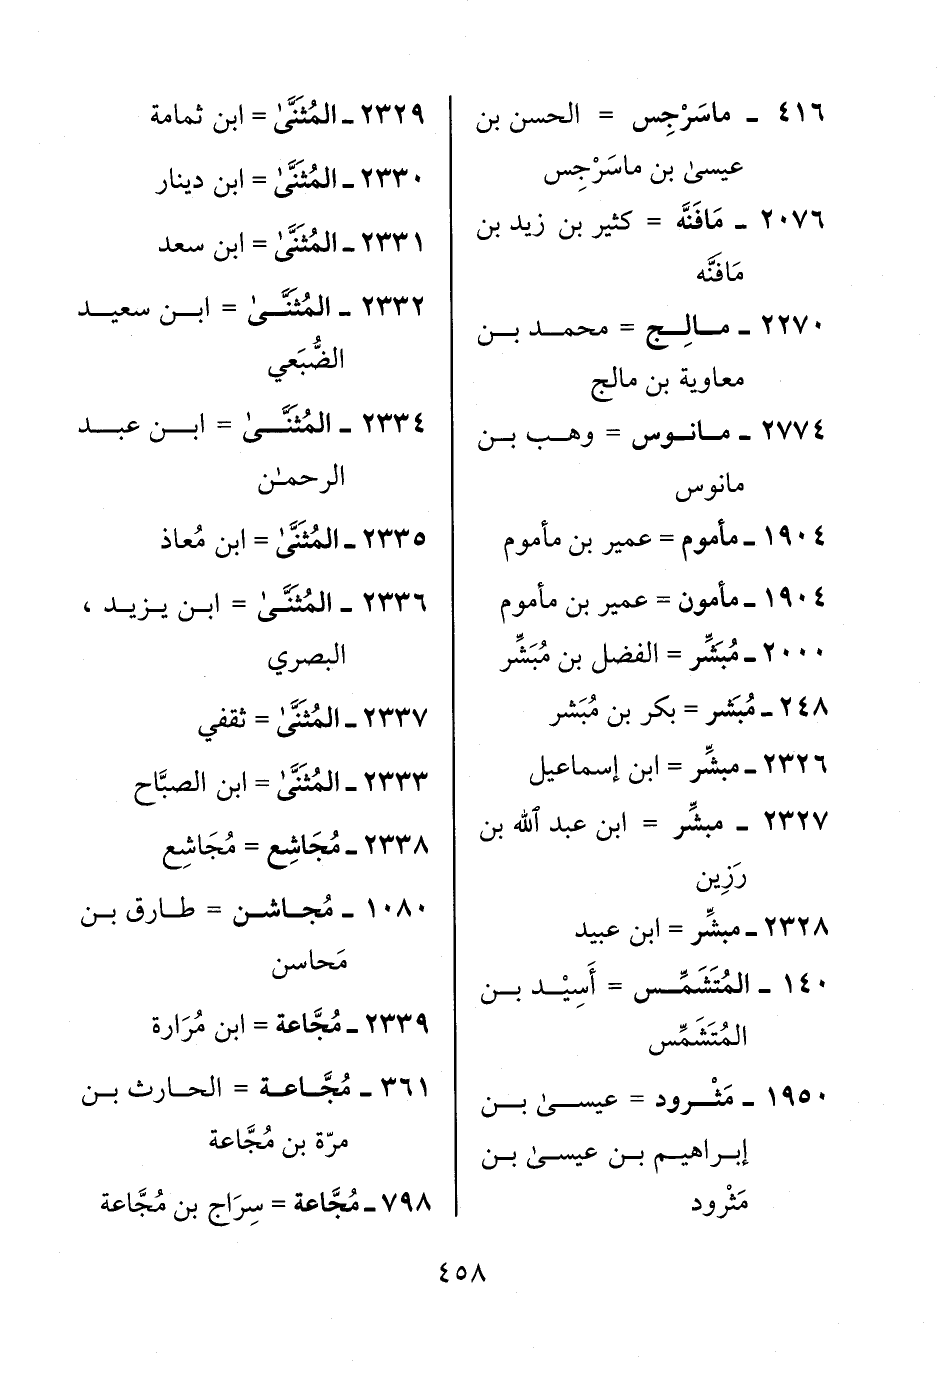 ٤١٦ ـ ماسَرْجِس = الحسن بن
عيسىٰ بن ماسَرْجِس
٢٠٧٦ ـ مَافَنَّه = كثير بن زيد بن
مَافَنَّه
٢٢٧٠ ـ مـالِـج = محمـد بـن
معاوية بن مالج
٢٧٧٤ ـ مـانـوس = وهـب بـن
مانوس
١٩٠٤ ـ مأموم = عمير بن مأموم
١٩٠٤ ـ مأمون = عمير بن مأموم
٢٠٠٠ ـ مُبَشِّر = الفضل بن مُبَشِّر
٢٤٨ ـ مُبَشر = بكر بن مُبَشر
٢٣٢٦ ـ مبشِّر = ابن إسماعيل
٢٣٢٧ ـ مبشِّر = ابن عبد ٱلله بن
رَزِين
٢٣٢٨ ـ مبشِّر = ابن عبيد
١٤٠ ـ المُتَشَمِّـس = أَسِيْـد بـن
المُتَشَمِّس
١٩٥٠ ـ مَثْـرود = عيسـىٰ بـن
إبـراهيـم بـن عيسـىٰ بـن
مَثْرود
٢٣٢٩ ـ المُثنَّىٰ = ابن ثمامة
٢٣٣٠ ـ المُثَنَّىٰ = ابن دينار
٢٣٣١ ـ المُثَنَّىٰ = ابن سعد
٢٣٣٢ ـ المُثَنَّـىٰ = ابـن سعيـد
الضُّبَعي
٢٣٣٤ ـ المُثَنَّـىٰ = ابـن عبـد
الرحمـٰن
٢٣٣٥ ـ المُثَنَّىٰ = ابن مُعاذ
٢٣٣٦ ـ المُثنَّـىٰ = ابـن يـزيـد ،
البصري
٢٣٣٧ ـ المُثنَّىٰ = ثقفي
٢٣٣٣ ـ المُثَنَّىٰ = ابن الصبَّاح
٢٣٣٨ ـ مُجَاشِع = مُجَاشِع
١٠٨٠ ـ مُجـاشـن = طـارق بـن
مَحاسن
٢٣٣٩ ـ مُجَّاعة = ابن مُرَارة
٣٦١ ـ مُجَّـاعـة = الحـارث بـن
مرّة بن مُجَّاعة
٧٩٨ ـ مُجَّاعة = سِرَاج بن مُجَّاعة
٤٥٨